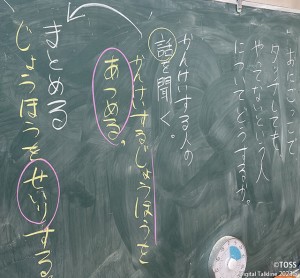 おにごっこで
タッチしても
やってないという人
についてどうするか。
かんけいする人の
話を聞く。
かんけいするじょうほうを
あつめる。
まとめる
じょうほうをせいりする
©TOSS
Digital Talkline 2023